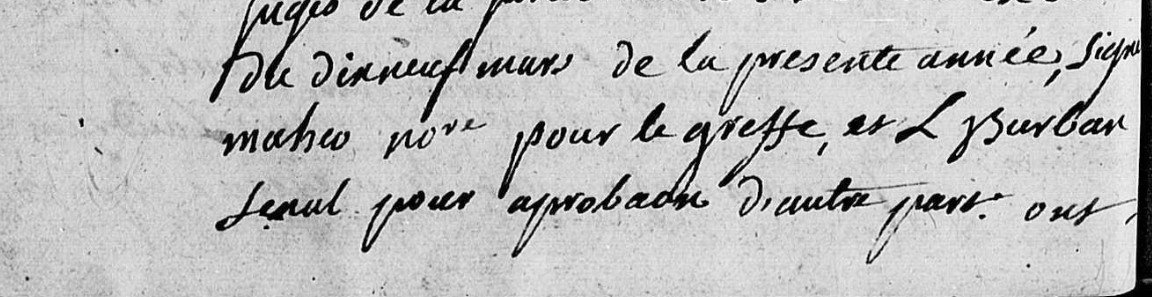 juges de la
du dixneuf mars de la presente année, signé
maheo no.re pour le greffe, et L Burban
senal pour aprobaon d'autre part. ont